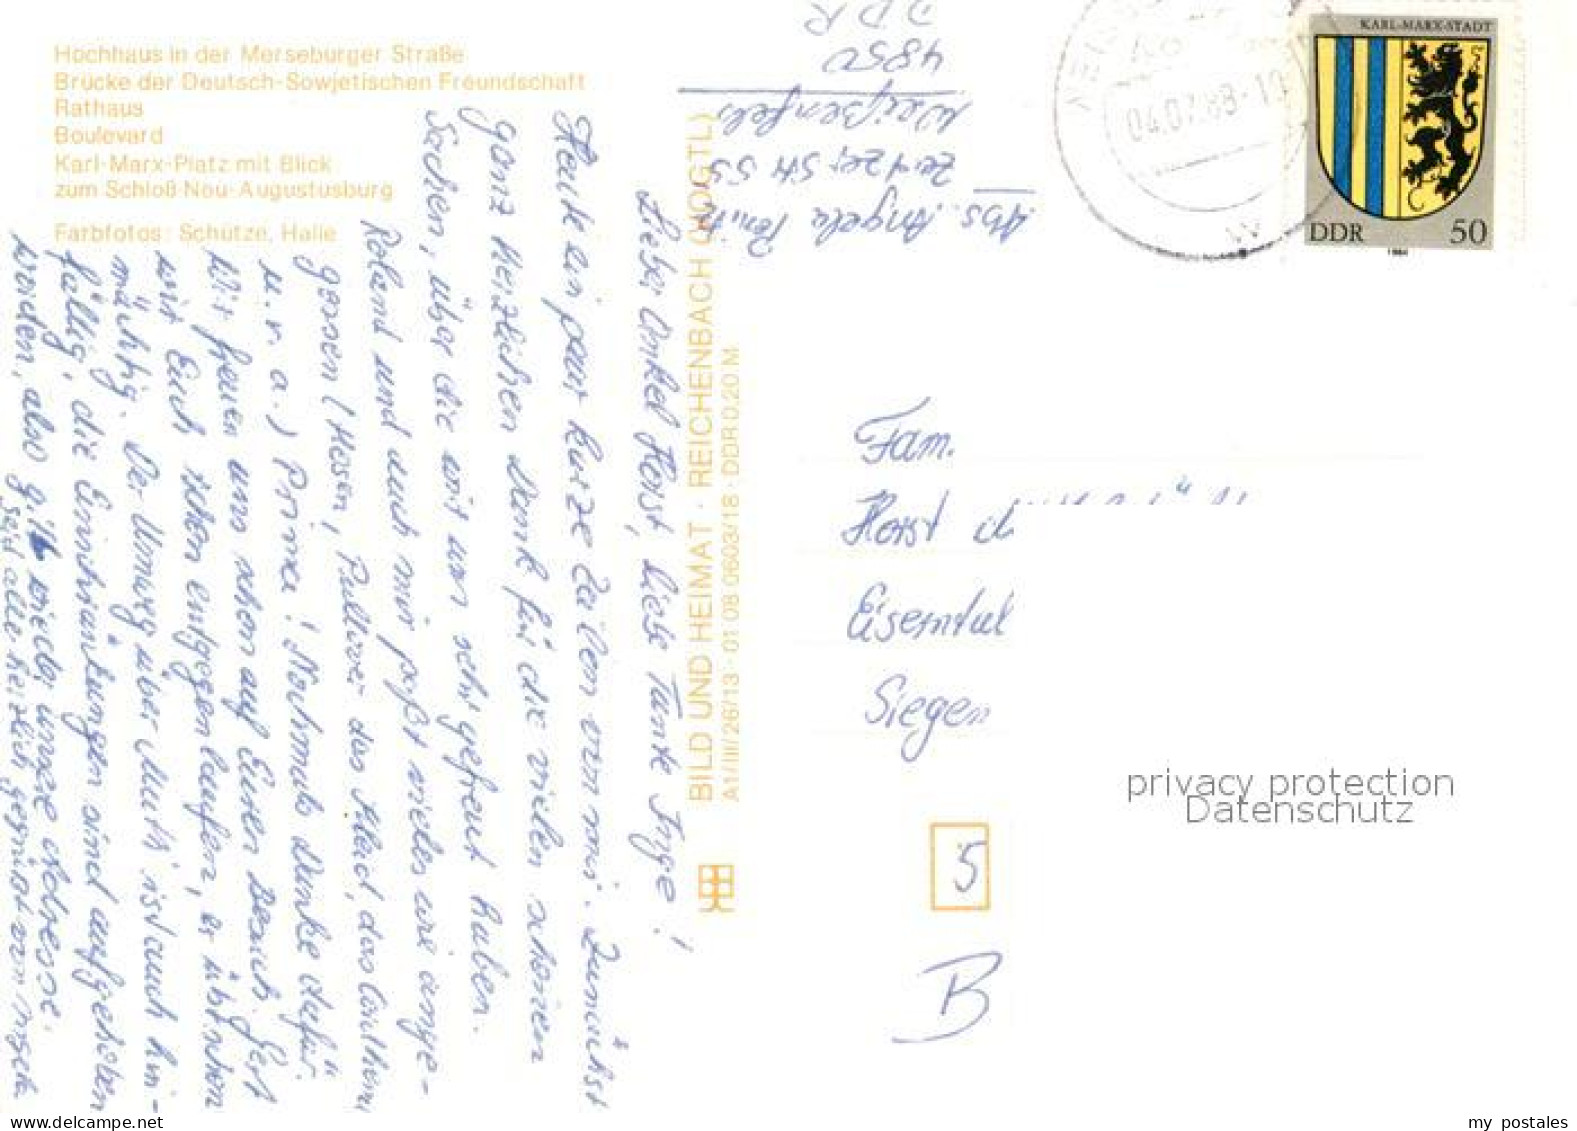 Hochhaus in der Merseburger Straße
Brücke der Deutsch-Sowjetischen Freundschaft
Rathaus
Boulevard
Karl-Marx-Platz mit Blick
zum Schloß Neu-Augustusburg
Farbfotos: Schütze, Halle
BILD UND HEIMAT · REICHENBACH (VOGTL)
A1/III/26/13 · 01 08 0603/18 · DDR 0,20 M
Lieber Onkel Horst, liebe Tante Inge!
Heute ein paar kurze Zeilen von mir. Zunächst
ganz herzlichen Dank für die vielen schönen
Sachen, über die wir uns sehr gefreut haben.
Roland und auch mir paßt vieles wie ange-
gossen (Hosen, Pullover das Kleid, das
u. v. a.) Prima! Nochmals Danke dafür.
Wir freuen uns schon auf Euren Besuch. Gert
wird Euch schon entgegenlaufen, er übt schon
mächtig. Der Umweg über Mutti ist auch hin-
fällig, die Einschränkungen sind aufgehoben
worden, also gilt wieder unsere Adresse.
Seid alle herzlich gegrüßt von
Abs. Angela
Zeitzer Str 55
Weißenfels
4850
DDR
04.07.88-10
KARL-MARX-STADT
DDR 50
1984
Fam.
Horst
Eiserntal
Siegen
5
B
privacy protection
Datenschutz
my postales